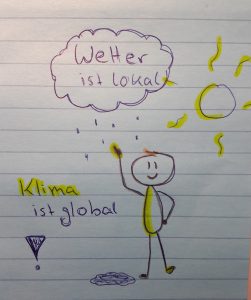 Wetter
ist lokal
Klima
ist global